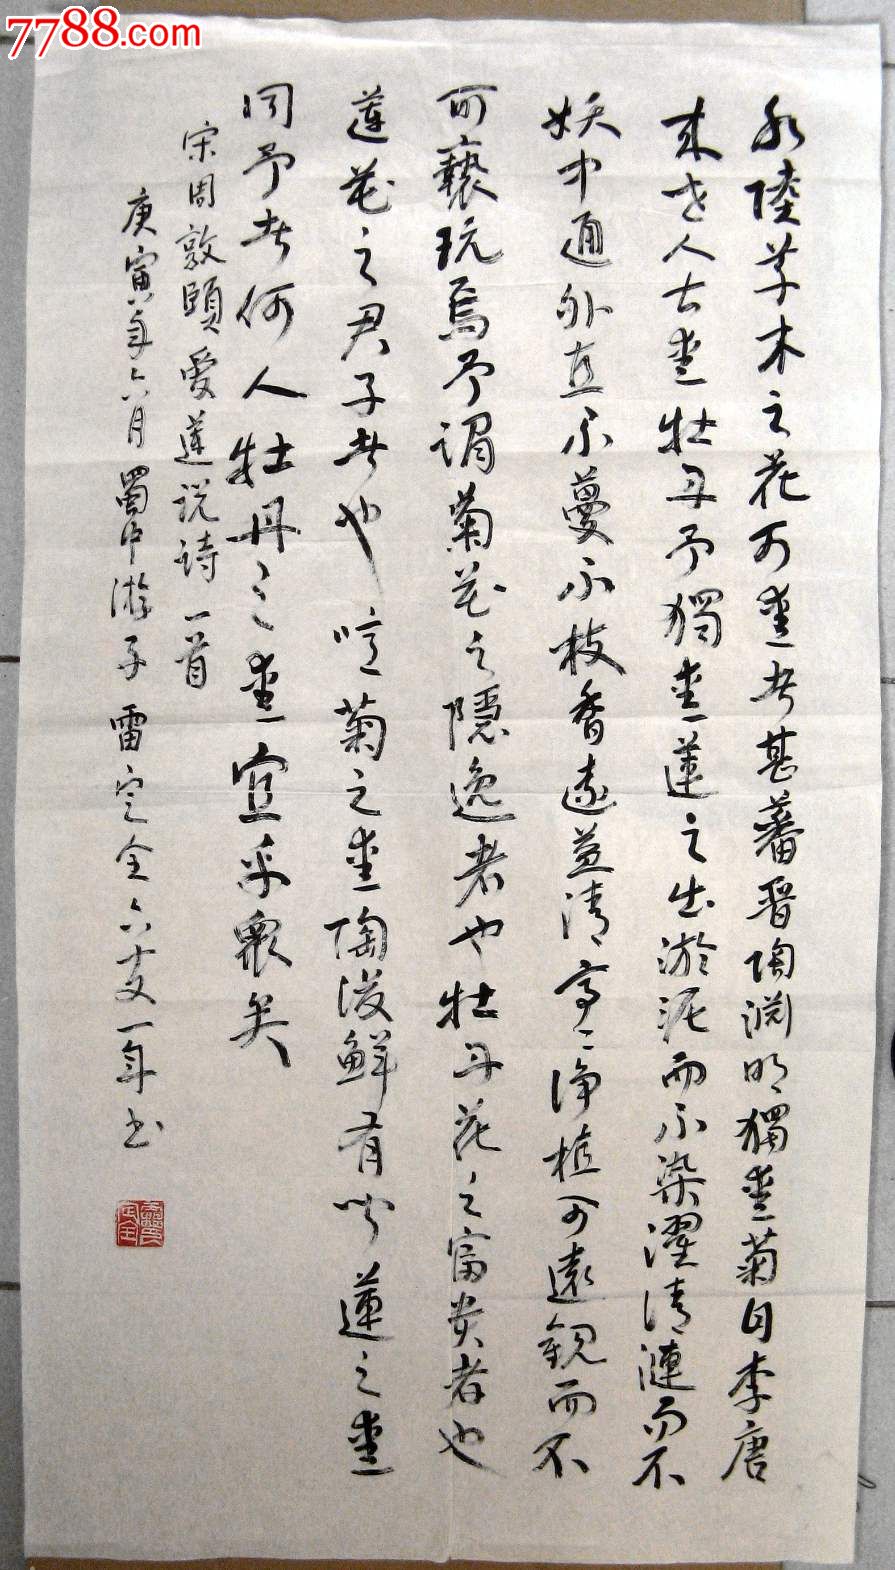 7788.com
水陸草木之花可愛者甚蕃晋陶淵明獨愛菊自李唐
来世人甚愛牡丹予獨愛蓮之出淤泥而不染濯清漣而不
妖中通外直不蔓不枝香遠益清亭亭浄植可遠觀而不
可褻玩焉予謂菊花之隱逸者也牡丹花之富贵者也
蓮花之君子者也噫菊之愛陶後鮮有聞蓮之愛
同予者何人牡丹之愛宜乎衆矣
宋周敦頤愛蓮説詩一首
庚寅年六月蜀中游子雷定全六十又一年书